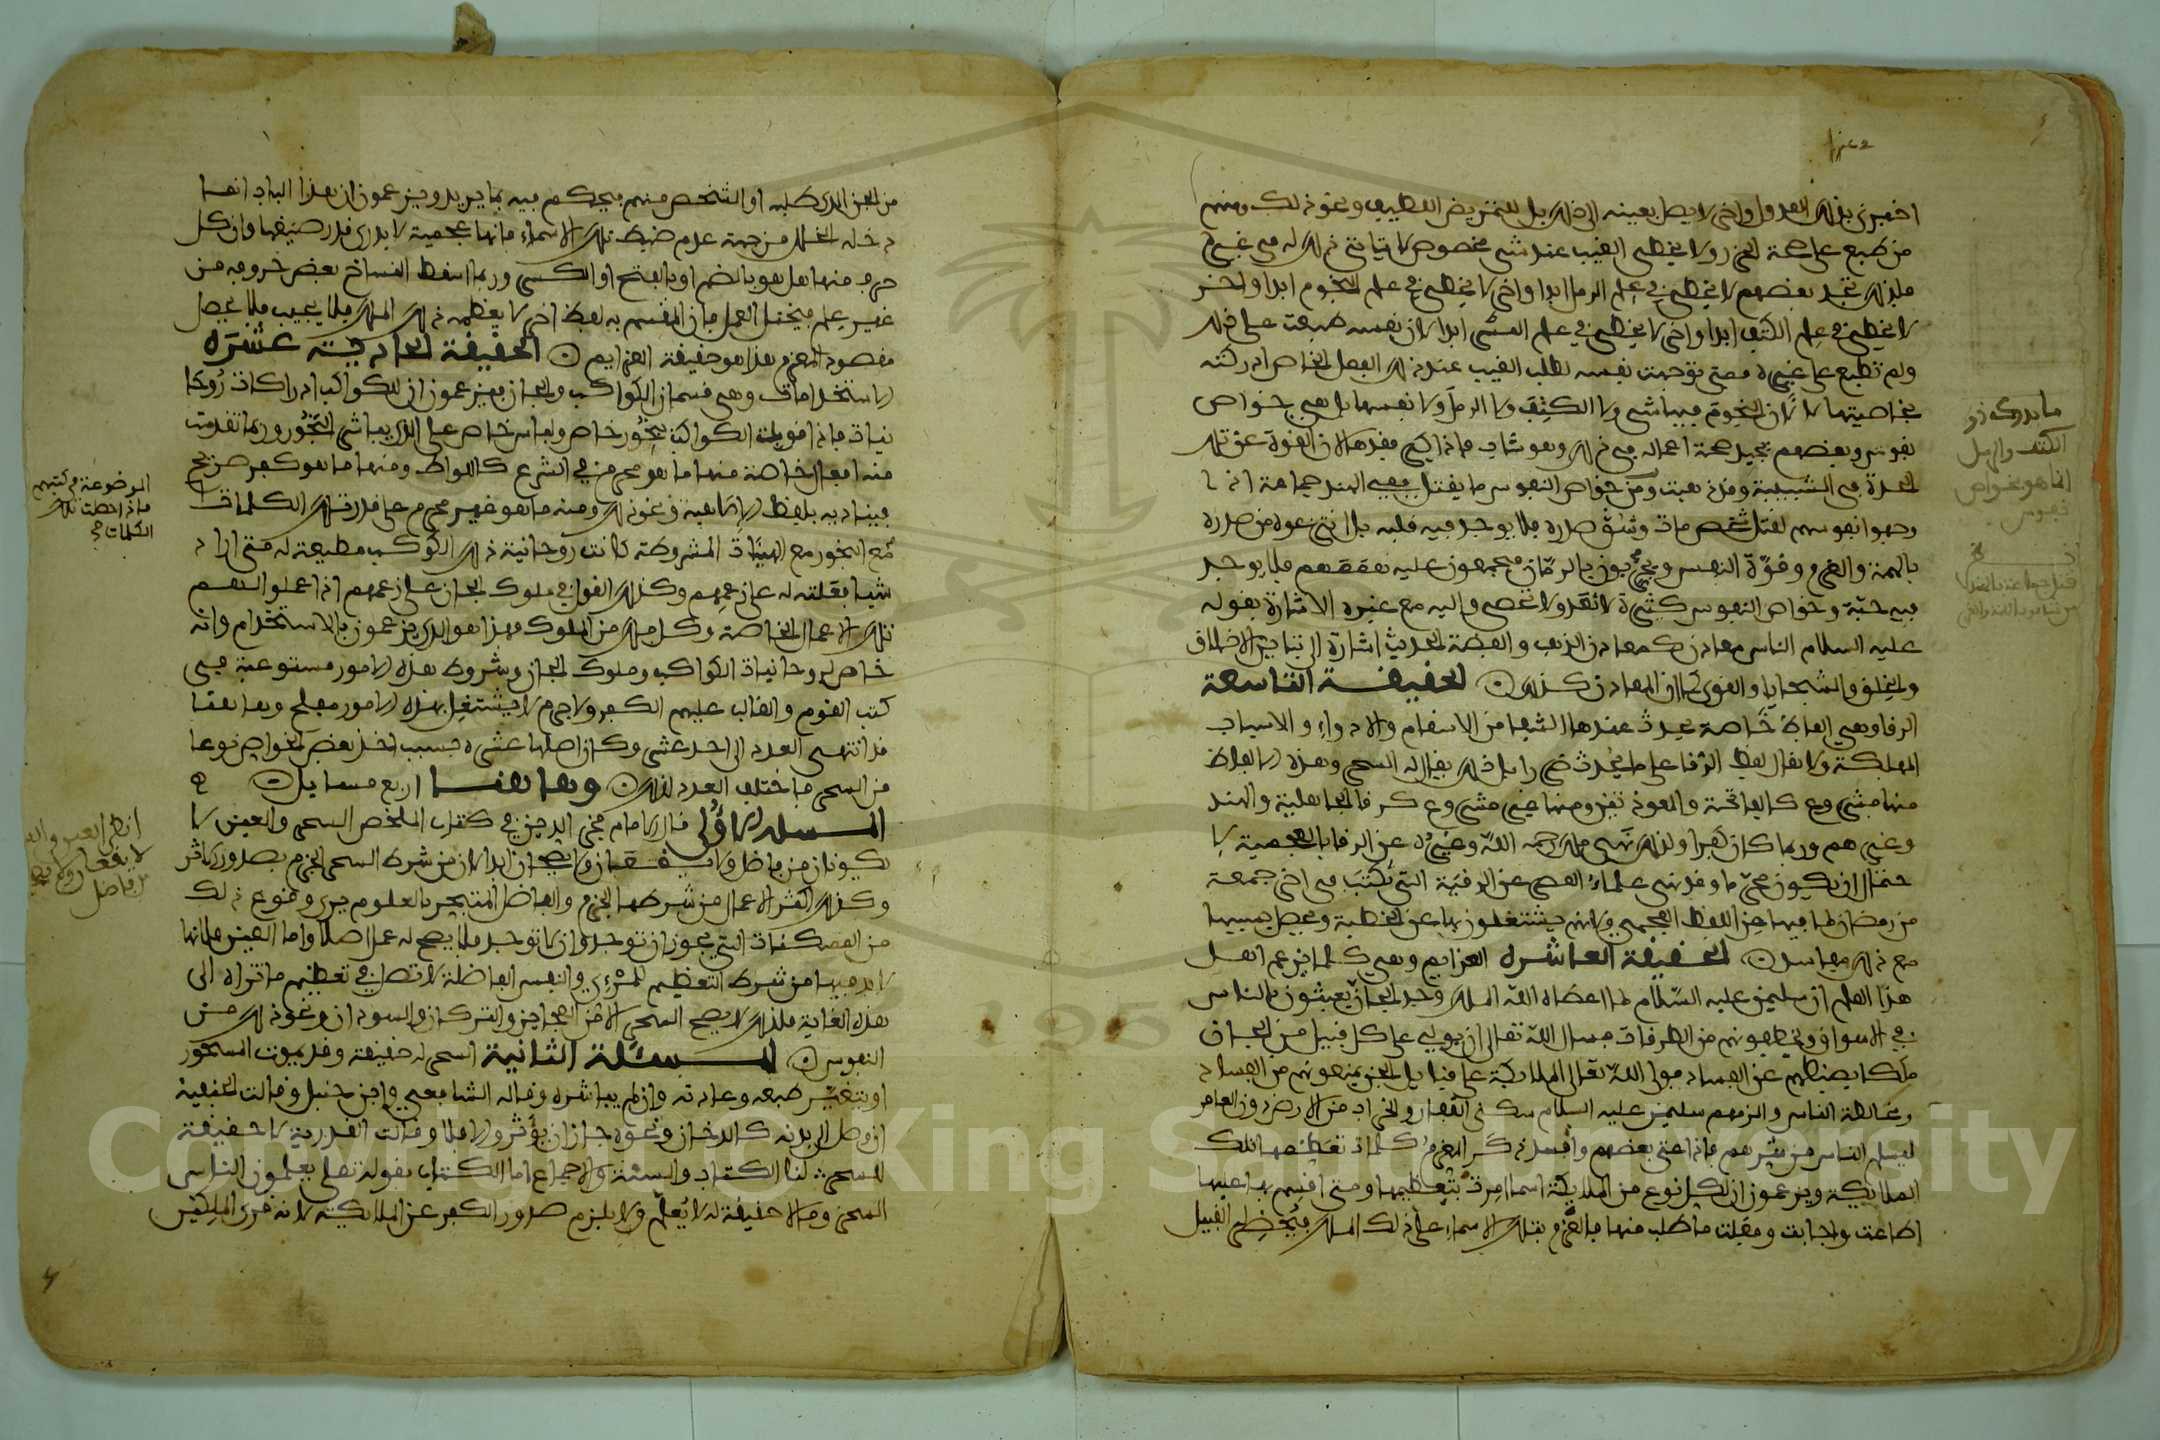 اخبرني بذلك العدول واخر لا يصل بعينه الى ذلك بل لتمريض اللطيف ونحو ذلك ومنهم
من طبع على صحة الحزر ولا يخطىء الغيب عند شىء مخصوص لا يتاتى ذلك له في غيره
فلذلك تجد بعضهم لا يخطىء في علم الرمل ابدا واخر لا يخطىء في علم النجوم ابدا واخر
لا يخطىء في علم الكتف ابدا واخر لا يخطىء في علم السير ابدا لان نفسه طبعت على ذلك
ولم تطبع على غيره فمتى توجهت نفسه لطلب الغيب عند ذلك الفعل الخاص ادركته
بخاصيتها لا لان النجوم فيها شىء ولا الكتف ولا الرمل ولا نفسها بل هي خواص
نفوس وبعضهم يجد صحة اعماله في ذلك وهو شاب فاذا كبر فقدها لان القوة عن تلك
الحدة في الشبيبة وقد ذهبت ومن خواص النفوس ما يقتل ففي الهند جماعة اذا
وجهوا نفوسهم لقتل شخص مات وشق صدره فلا يوجد فيه قلبه بل انتزعوه من صدره
بالهمة والعزم وقوة النفس ويجربون بالرمان فيجمعون عليه هممهم فلا يوجد
فيه حبة وخواص النفوس كثيرة لا تعد ولا تحصى واليه مع غيره الاشارة بقوله
عليه السلام الناس معادن كمعادن الذهب والفضة الحديث اشارة الى تباين الاخلاق
والخلق والسجايا والقوى كما ان المعادن كذلك الحقيقة التاسعة
الرقا وهي الفاظ خاصة يحدث عندها الشفا من الاسقام والادواء والاسباب
المهلكة ولا يقال لفظ الرقا على ما يحدث ضررا بل ذلك يقال له السحر وهذه الالفاظ
منها مشروع كالفاتحة والمعوذتين ومنها غير مشروع كرقا الجاهلية والهند
وغيرهم وربما كان كفرا ولذلك نهى مالك رحمه الله وغيره عن الرقا بالعجمية لا
حتمال ان يكون محرما وقد نهى علماء العصر عن الرقية التي تكتب في اخر جمعة
من رمضان لما فيها من اللفظ العجمي ولانهم يشتغلون بها عن الخطبة ويحصل بسببها
مع ذلك مفاسد الحقيقة العاشرة العزايم وهي كلمات يزعم اهل
هذا العلم ان سليمن عليه السلام لما اعطاه الله الملك وجد الجان يعبثون بالناس
في الاسواق ويخطفونهم من الطرقات فسال الله تعالى ان يولي على كل قبيل من الجان
ملكا يضبطهم عن الفساد فولى الله تعالى الملايكة على قبايل الجن يمنعونهم من الفساد
ومخالطة الناس والزمهم سليمن عليه السلام سكنى القفار والخراب من الارض دون العامر
ليسلم الناس من شرهم فاذا عثى بعضهم وافسد ذكر المعزم كلمات تعظمها تلك
الملايكة ويزعمون ان لكل نوع من الملايكة اسماء امرت بتعظيمها ومتى اقسم بها عليها
اطاعت واجابت وفعلت ما طلب منها فالمعزم بتلك الاسماء على ذلك الملك فيحضر له القبيل
ما يدرك ذو
الكتف والرمل
انما هو بخواص
نفوس
من الجن الذي طلبه او الشخص منهم فيحكم فيه بما يريد ويزعمون ان هذا الباب انما
دخله الخلل من جهة عدم ضبط تلك الاسماء فانها عجمية لا يدرى قدر صيغها وان كل
حرف منها هل هو بالضم او بالفتح او الكسر وربما اسقط النساخ بعض حروفه من
غير علم فيختل العمل فان المقسم به لفظ اخر لا يعظمه ذلك الملك فلا يجيب فلا يحصل
مقصود المعزم هذا هو حقيقة العزايم الحقيقة الحادية عشرة
الاستخدامات وهي قسمان الكواكب والجان فيزعمون ان للكواكب ادراكات روحا
نيات فاذا قوبلت الكواكب ببخور خاص ولباس خاص على الذي يباشر البخور وربما تقدمت
منه افعال خاصة منها ما هو محرم في الشرع كاللواط ومنها ما هو كفر صريح
فينادبه بلفظ الالاهية ونحو ذلك ومنه ما هو غير محرم على قدر تلك الكلمات
الموضوعة في كتبهم
فاذا حصلت تلك
الكلمات
مع البخور مع الهيئات المشروطة كانت روحانية ذلك الكوكب مطيعة له متى اراد
شيا فعلته له على زعمهم وكذلك القول في ملوك الجان على زعمهم اذا عملوا لهم
تلك الاعمال الخاصة وكل ملك من الملوك فهذا هو الذي يزعمون بالاستخدام وانه
خاص لروحانيات الكواكب وملوك الجان وشروط هذه الامور مستوعبة في
كتب القوم والغالب عليهم الكفر ولا جرم لا يشتغل بهذه الامور مفلح وهاهنا
قد انتهى العدد الى احد عشر وكان اصلها عشرة حسب اخذ بعض الخواص نوعا
من السحر فاختلف العدد لذلك وهاهنا اربع مسايل
المسلة الاولى قال الامام فخر الدين في كتاب الملخص السحر والعين لا
يكونان من فاضل ولا يقعان ولا يصحان ابدا لان من شرط السحر الجزم بصدور الاثر
انظر العين والسحر
لا يقعان
فاضل
وكذلك اكثر الاعمال من شرطها الجزم والفاضل المتبحر بالعلوم يرى وقوع ذلك
من الممكنات التي يجوز ان توجد وان لا توجد فلا يصح له عمل اصلا واما العين فلانها
لا بد فيها من شرط التعظيم للمرءي والنفس الفاضلة لا تصل في تعظيم ما تراه الى
هذه الغاية فلذلك لا يصح السحر الا من العجايز والتركمان والسودان ونحو ذلك من
النفوس المسئلة الثانية السحر له حقيقة وقد يموت المسحور
او يتغير طبعه وعادته وان لم يباشره وقاله الشافعي وابن حنبل وقالت الحنفية
ان وصل الى بدنه كالدخان ونحوه جاز ان يؤثر والا فلا وقالت القدرية لا حقيقة
للسحر لنا الكتاب والسنة والاجماع اما الكتاب فقوله تعلى يعلمون الناس
السحر وما لا حقيقة له لا يعلم ولا يلزم صدور الكفر عن الملايكة لانه قرئ الملكين
Copyright © King Saud University